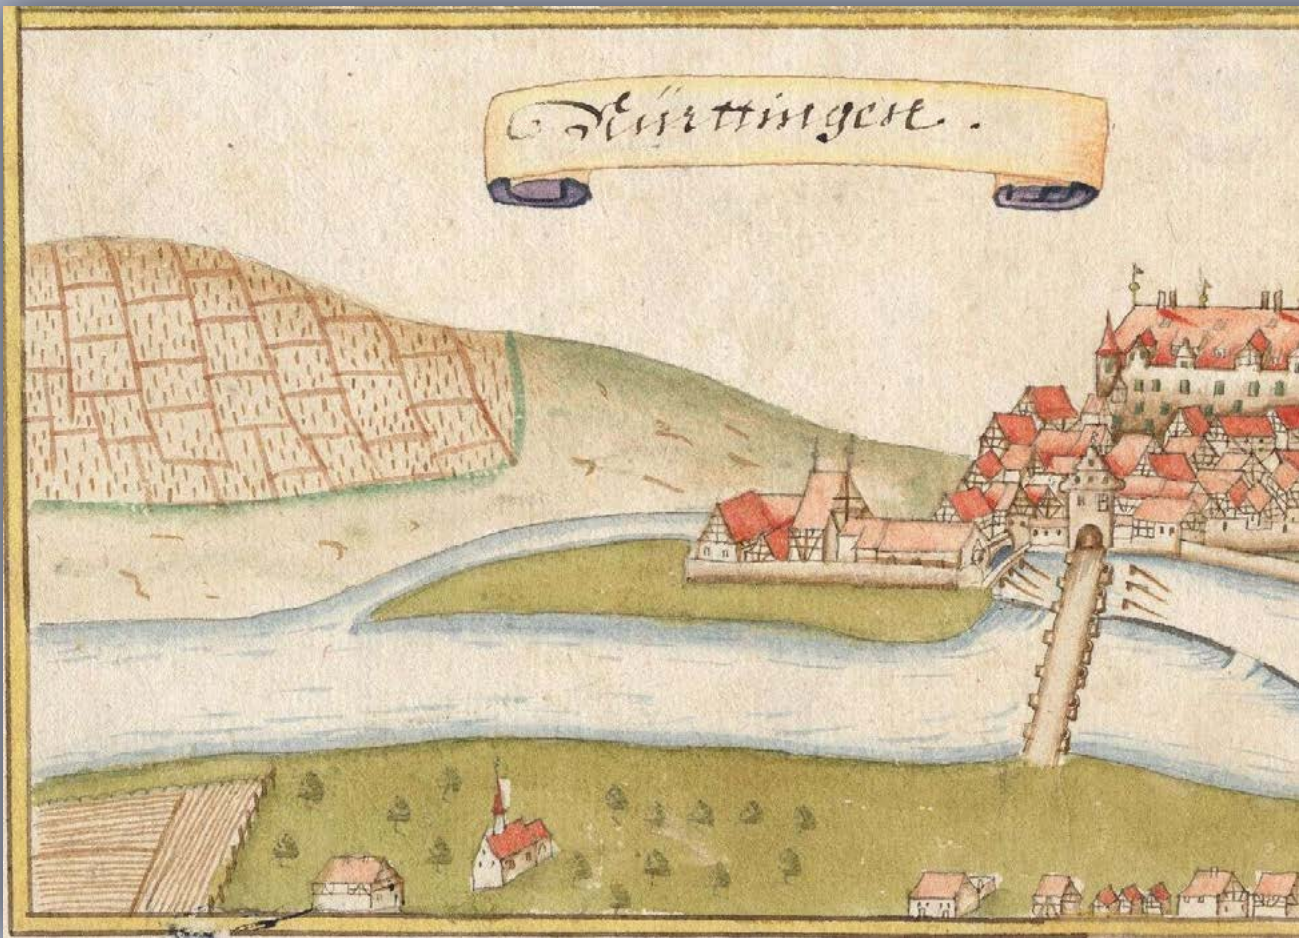 Nürttingen.